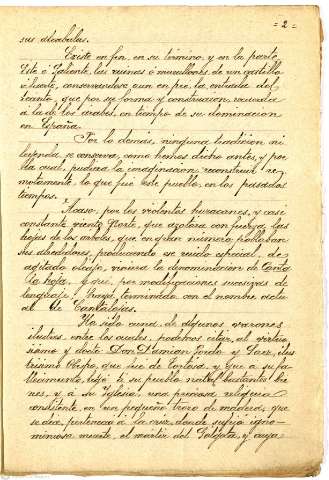 = 2 =
sus alcabalas.
Existe en fin, en su término, y en la parte
Este ó Saliente, las ruinas ó murallones, de un castillo
ó fuerte, conservandose aun en pie, la entrada del
recinto, que por su forma y construcción, recuerda
á la de los árabes, en tiempo de su dominación
en España.
Por lo demás, ninguna tradición ni
leyenda se conserva, como hemos dicho antes, y por
la cual, pudiera la imaginación reconstruir re-
motamente, lo que fué este pueblo, en los pasados
tiempos.
Acaso, por los violentos huracanes, y casi
constante viento Norte, que azotara con fuerza, las
hojas de los árboles, que en gran número poblaban
sus alrededores, produciendo un ruido especial, de
agitado oleaje, viniera la denominación de Canta
la hoja, y que, por modificaciones sucesivas de
lenguaje, haya terminado con el nombre actu-
al de Cantalojas.
Ha sido cuna, de algunos varones
ilustres, entre los cuales, podemos citar, al virtuo
sísimo y docto Don Damian Gordo y Saez, ilus
trísimo Obispo, que fué de Tortosa, y que á su fa-
llecimiento, legó á su pueblo natal bastantes bie-
nes, y á su Iglesia, una preciosa reliquia
consistente, en un pequeño trozo de madera, que
se dice, perteneció á la cruz, donde sufrió igno-
miniosa muerte, el mártir del Gólgota, y cuya